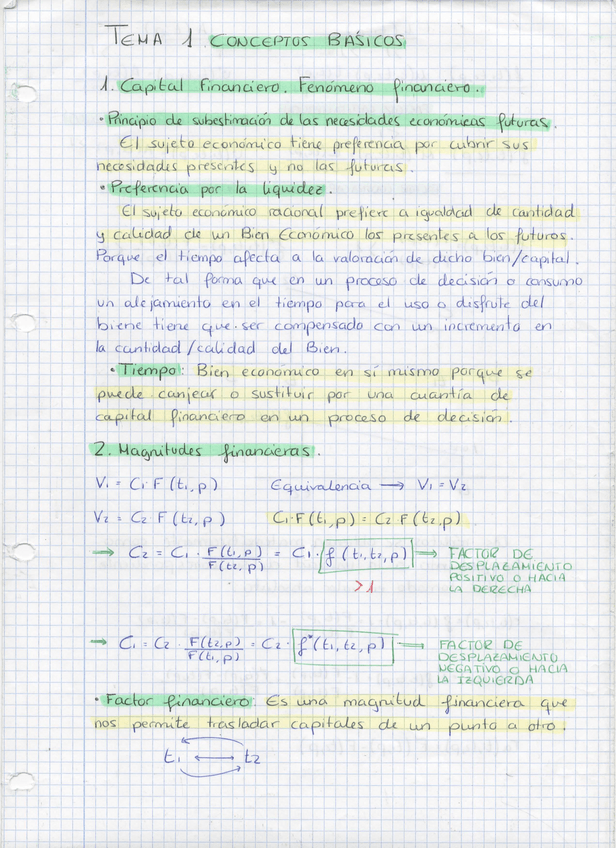 TEMA 1 CONCEPTOS BÁSICOS
1. Capital financiero. Fenómeno financiero.
• Principio de subestimación de las necesidades económicas futuras.
El sujeto económico tiene preferencia por cubrir sus
necesidades presentes y no las futuras.
• Preferencia por la liquidez.
El sujeto económico racional prefiere a igualdad de cantidad
y calidad de un Bien Económico los presentes a los futuros.
Porque el tiempo afecta a la valoración de dicho bien/capital.
De tal forma que en un proceso de decisión o consumo
un alejamiento en el tiempo para el uso o disfrute del
biene tiene que ser compensado con un incremento en
la cantidad/calidad del Bien.
• Tiempo: Bien económico en sí mismo porque se
puede canjear o sustituir por una cuantía de
capital financiero en un proceso de decisión.
2. Magnitudes financieras.
V₁ = C₁ F (t₁, p) Equivalencia → V₁ = V₂
V₂ = C₂ F (t₂, p) C₁·F (t₁, p) = C₂ F (t₂, p)
→ C₂ = C₁ · F(t₁, p) / F(t₂, p) = C₁ · f (t₁, t₂, p) → FACTOR DE
DESPLAZAMIENTO
POSITIVO O HACIA
LA DERECHA
>1
→ C₁ = C₂ · F(t₂, p) / F(t₁, p) = C₂ · f*(t₁, t₂, p) → FACTOR DE
DESPLAZAMIENTO
NEGATIVO O HACIA
LA IZQUIERDA
• Factor financiero. Es una magnitud financiera que
nos permite trasladar capitales de un punto a otro.
t₁ ↔ t₂